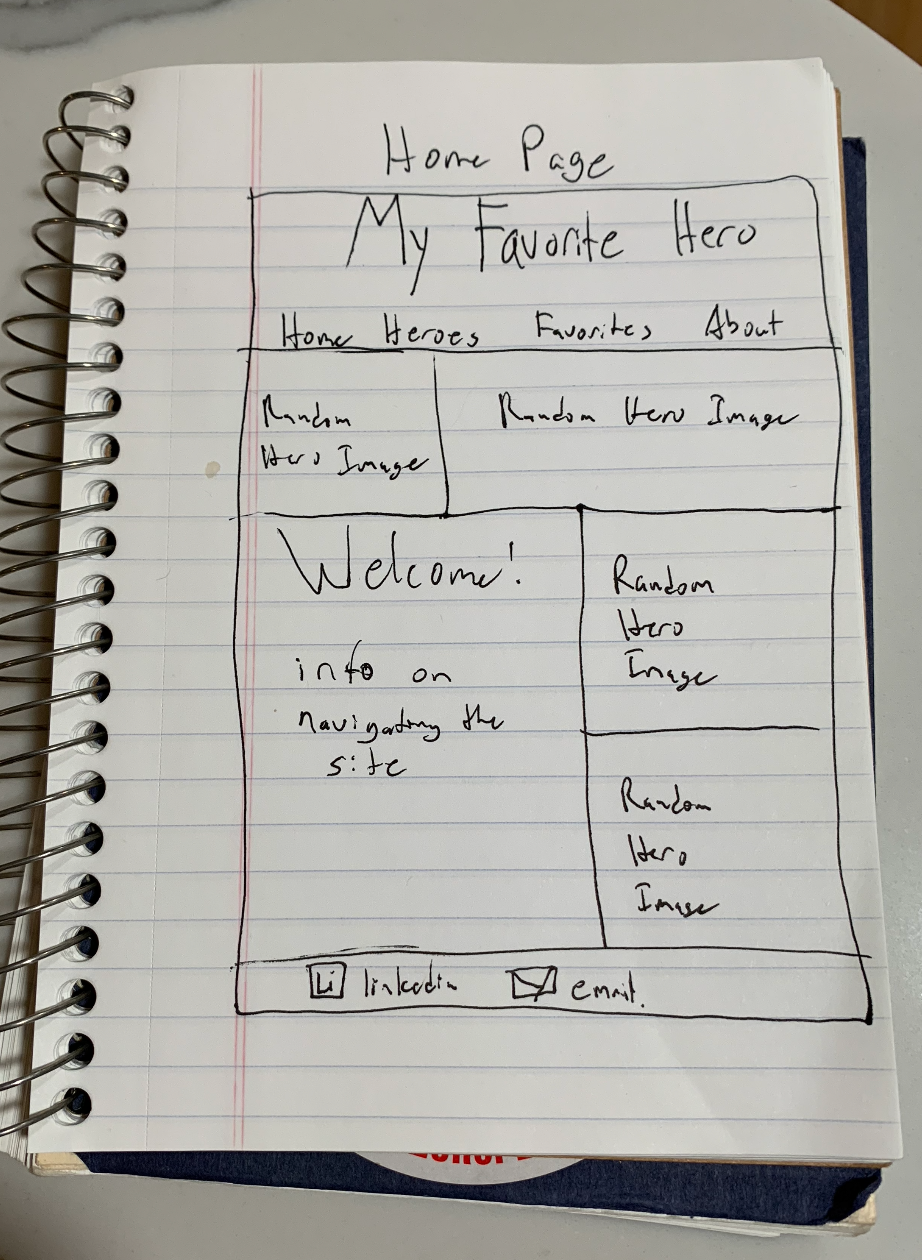 Home Page
My Favorite Hero
Home Heroes Favorites About
Random
Hero Image
Random Hero Image
Welcome!
info on
navigating the
site
Random
Hero
Image
Random
Hero
Image
Li linkedin email.